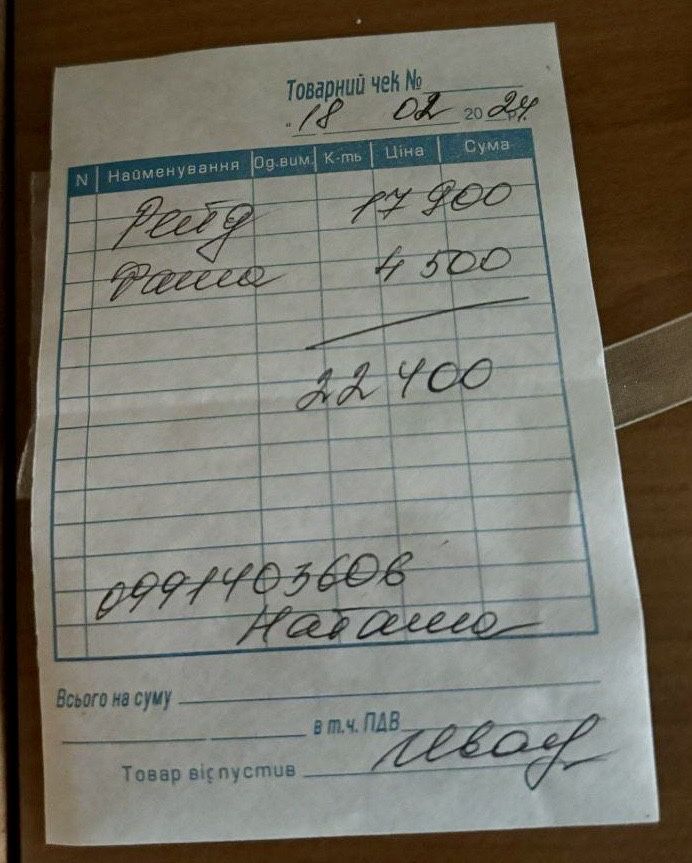 Товарний чек №
" 18 02 2024 р.
N Найменування Од.вим. К-ть Ціна Сума
Рейд 17 900
Фата 4 500
22 400
0991403606
Наташа
Всього на суму
в т.ч. ПДВ
Товар відпустив